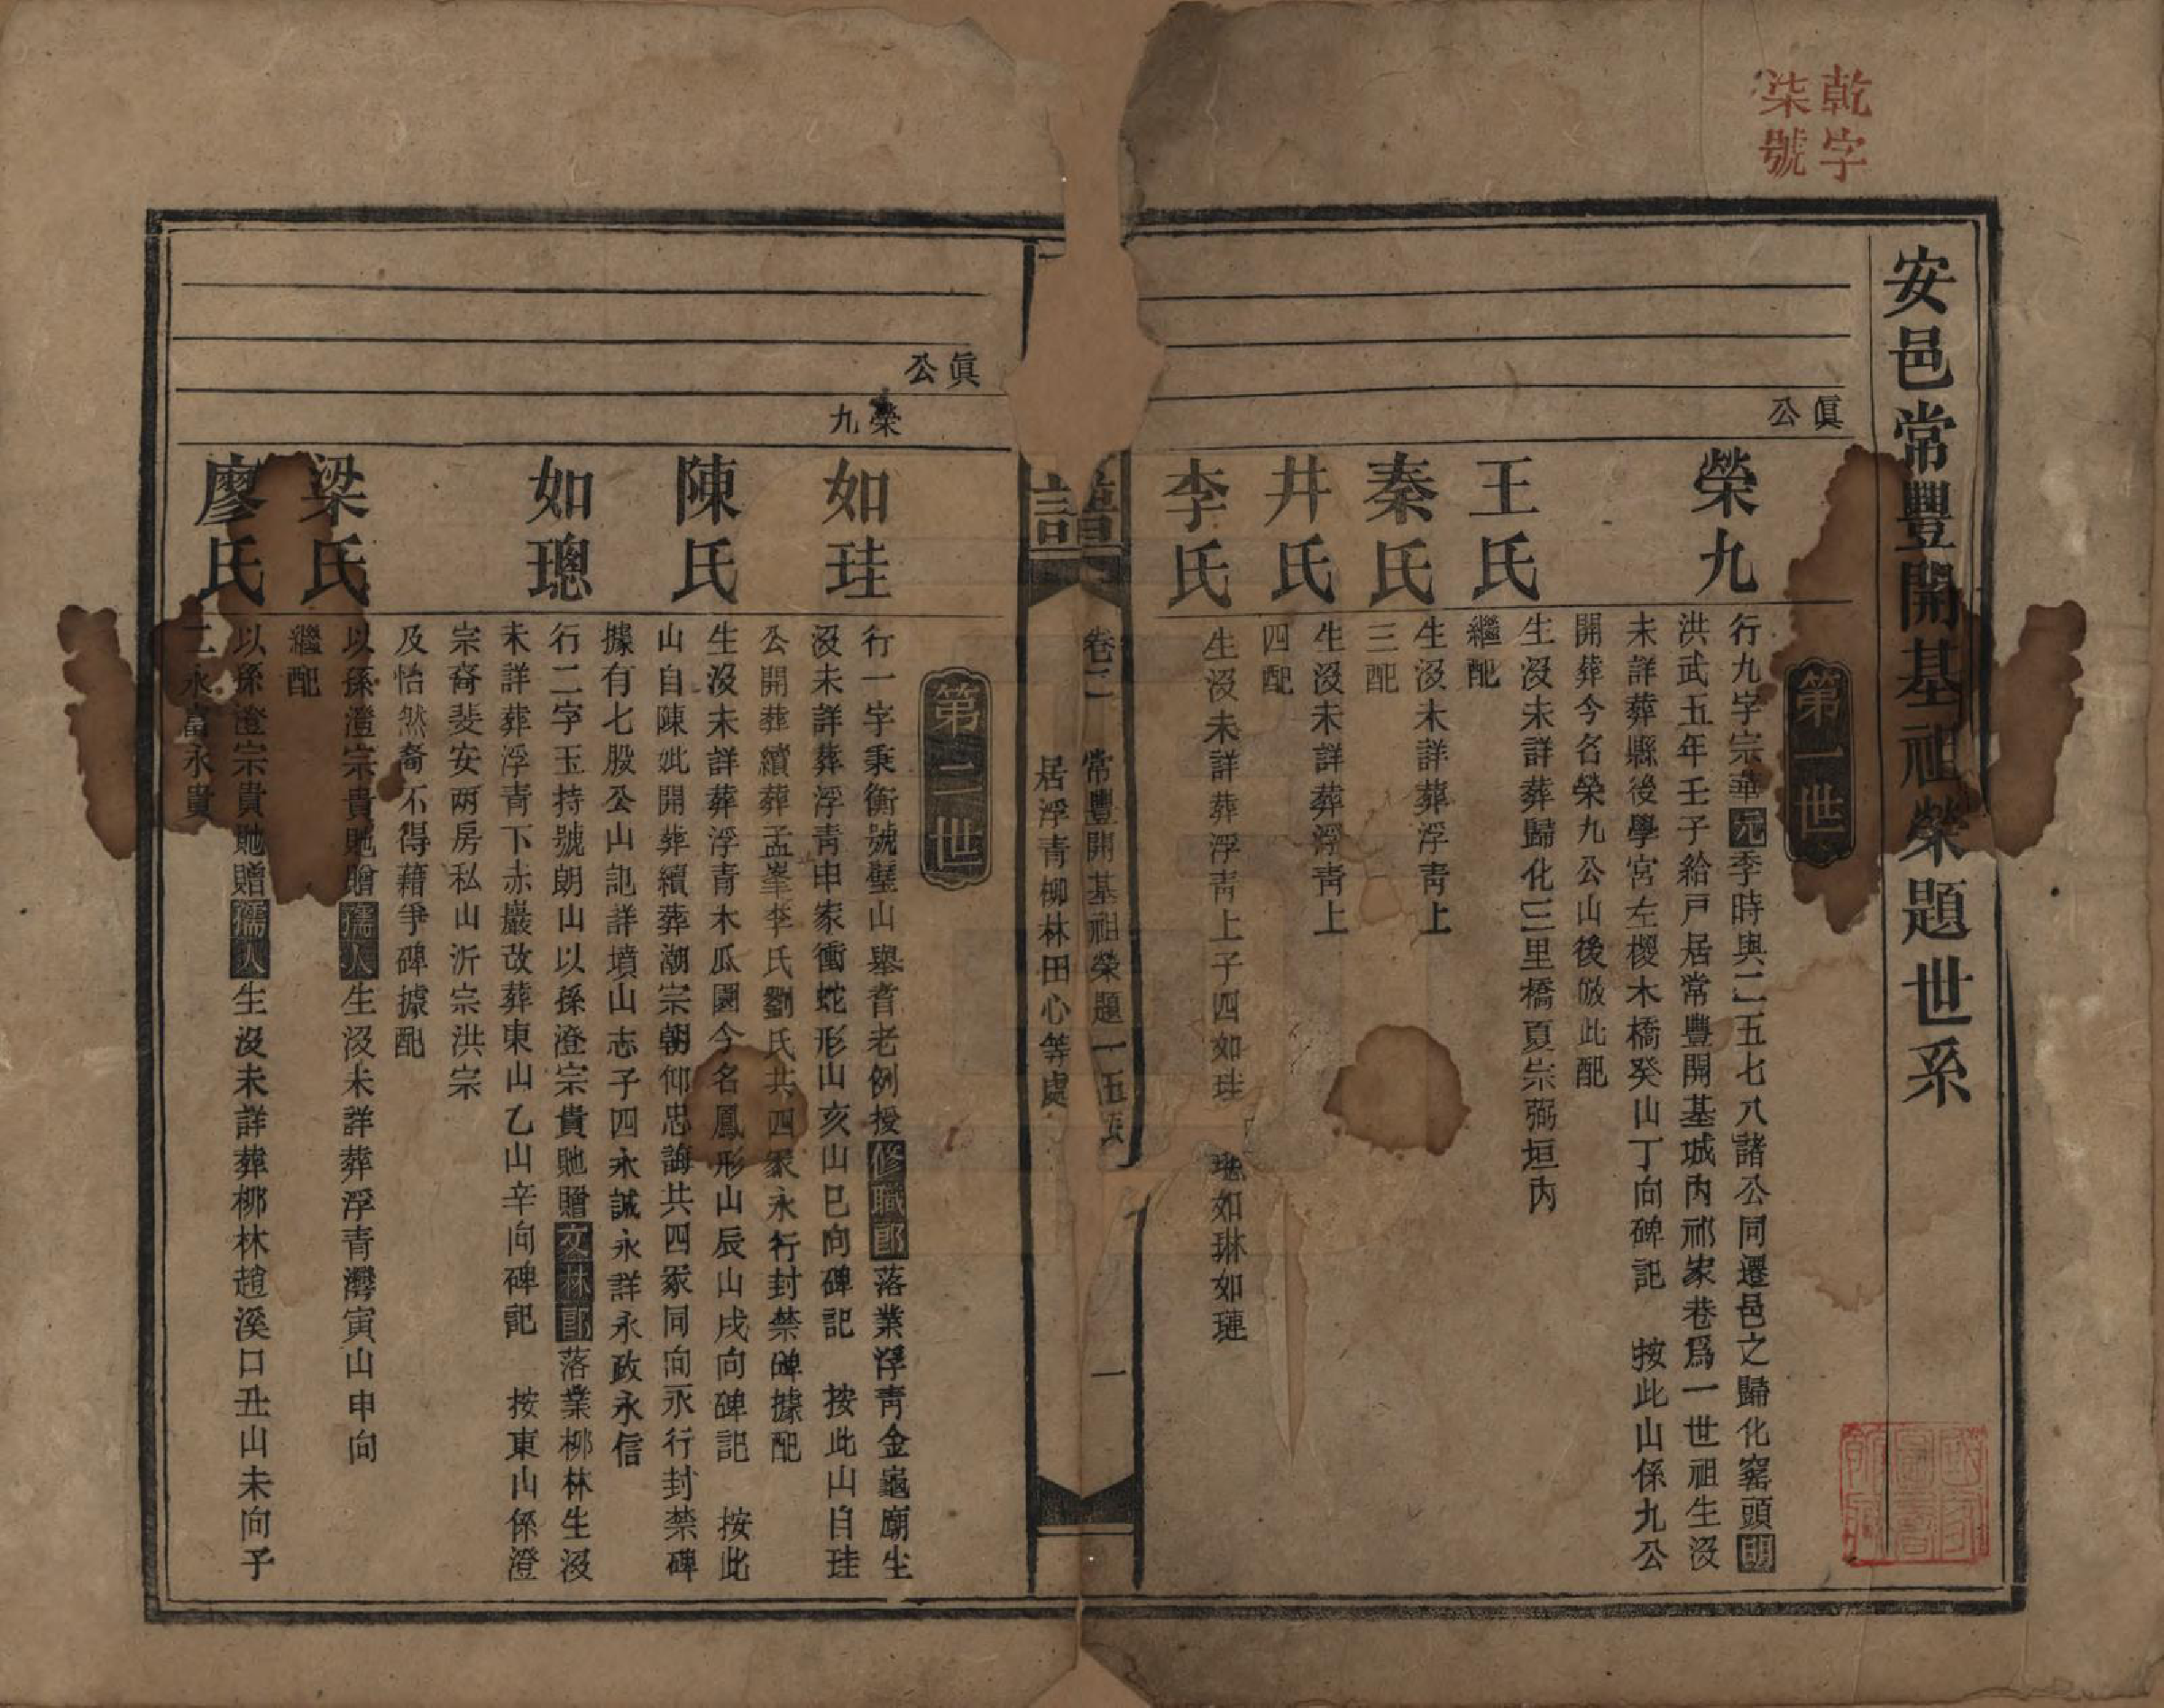 乾字
柒號
安邑常豐開基祖榮題世系
第一世
眞公
榮九
行九字宗華元季時與二五七八諸公同遷邑之歸化窰頭明
洪武五年壬子給戸居常豐開基城內祁家巷爲一世祖生沒
未詳葬縣後學宮左樱木橋癸山丁向碑記　按此山係九公
開葬今名榮九公山後倣此配
王氏
生沒未詳葬歸化三里橋夏宗弼垣內
繼配
秦氏
生沒未詳葬浮靑上
三配
井氏
生沒未詳葬浮靑上
四配
李氏
生沒未詳葬浮靑上子四如珪　璁如琳如璉
譜
卷二　常豐開基祖榮題一　
居浮青柳林田心等處
一
第二世
眞公
榮九
如珪
行一字秉衡號璧山舉耆老例授修職郎落業浮靑金龜廟生
沒未詳葬浮青申家衝蛇形山亥山巳向碑記　按此山自珪
公開葬續葬孟峯李氏劉氏共四冢永行封禁碑據配
陳氏
生沒未詳葬浮青木瓜園今名鳳形山辰山戌向碑記　按此
山自陳妣開葬續葬潮宗朝仰忠誨共四冢同向永行封禁碑
據有七股公山記詳墳山志子四永誠永詳永政永信
如璁
行二字玉持號朗山以孫澄宗貴貤贈文林郎落業柳林生沒
未詳葬浮青下赤巖改葬東山乙山辛向碑記　按東山係澄
宗裔裴安兩房私山沂宗洪宗
及怡然裔不得藉爭碑據配
梁氏
以孫澄宗貴貤贈孺人生沒未詳葬浮青灣寅山申向
繼配
廖氏
以孫澄宗貴貤贈孺人生沒未詳葬柳林趙溪口丑山未向子
二永富永貴